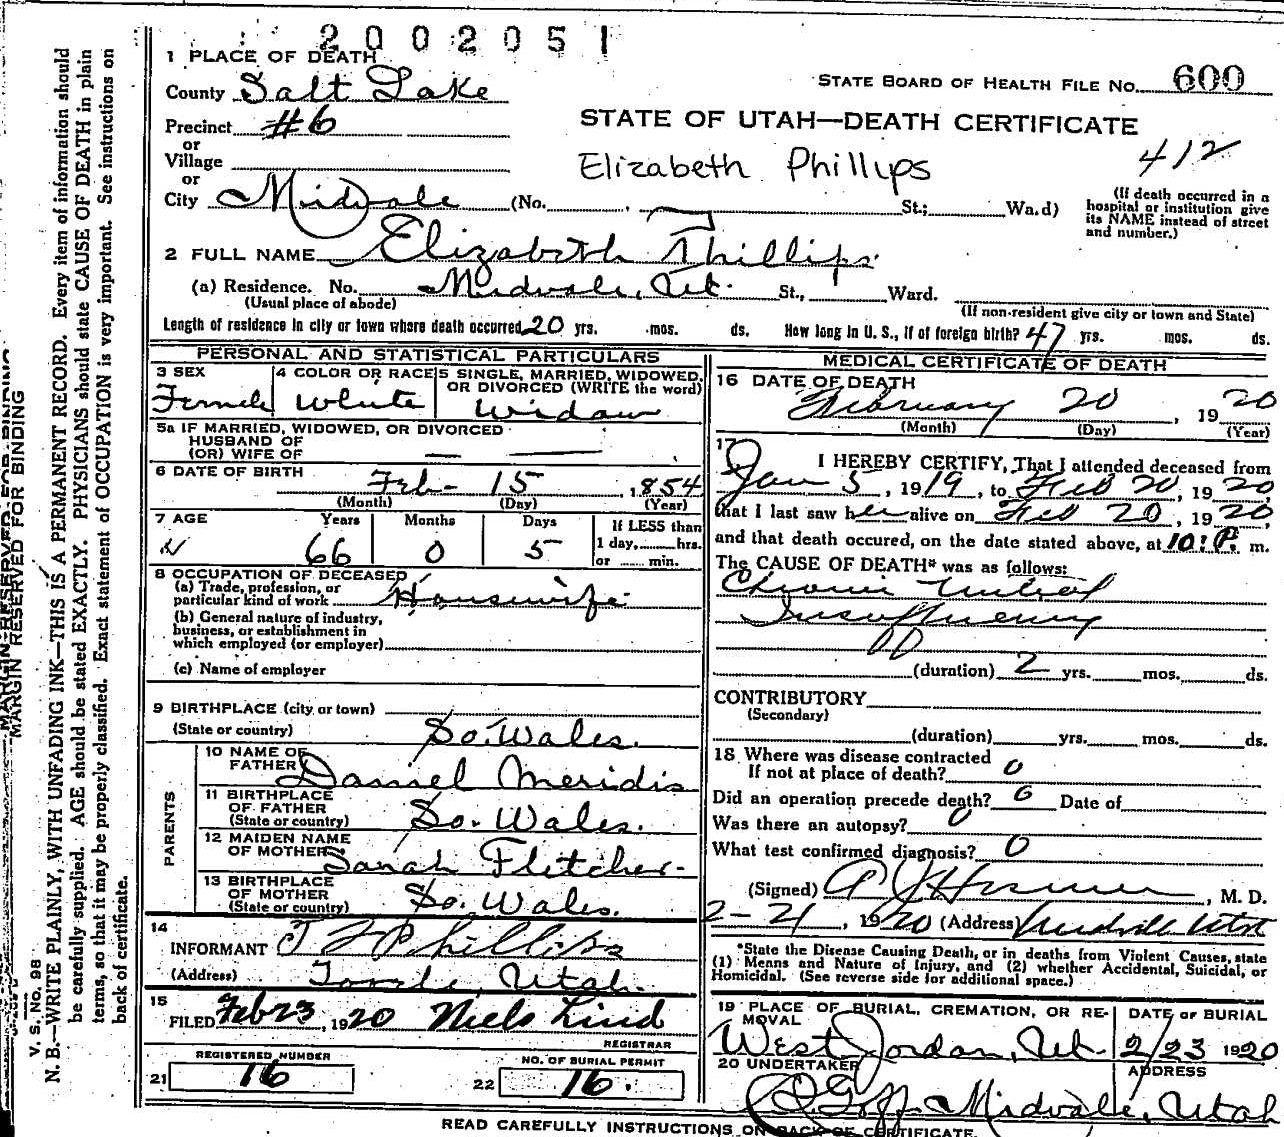 2002051
1 PLACE OF DEATH
County Salt Lake
STATE BOARD OF HEALTH FILE No. 600
Precinct #6
STATE OF UTAH—DEATH CERTIFICATE
or
Village
Elizabeth Phillips
412
or
City Midvale (No. St.; Wa.d)
(If death occurred in a hospital or institution give its NAME instead of street and number.)
2 FULL NAME Elizabeth Phillips
(a) Residence. No. Midvale, Ut. St., Ward.
(Usual place of abode) (If non-resident give city or town and State)
Length of residence in city or town where death occurred 20 yrs. mos. ds. How long in U. S., if of foreign birth? 47 yrs. mos. ds.
PERSONAL AND STATISTICAL PARTICULARS
3 SEX
Female
4 COLOR OR RACE
White
5 SINGLE, MARRIED, WIDOWED, OR DIVORCED (WRITE the word)
Widow
5a IF MARRIED, WIDOWED, OR DIVORCED
HUSBAND OF
(OR) WIFE OF
6 DATE OF BIRTH
Feb- 15, 1854
(Month) (Day) (Year)
7 AGE Years Months Days
66 0 5
If LESS than
1 day, hrs.
or min.
8 OCCUPATION OF DECEASED
(a) Trade, profession, or
particular kind of work Housewife
(b) General nature of industry,
business, or establishment in
which employed (or employer)
(c) Name of employer
9 BIRTHPLACE (city or town)
(State or country) So. Wales.
PARENTS
10 NAME OF
FATHER Daniel Meridis
11 BIRTHPLACE
OF FATHER
(State or country) So. Wales.
12 MAIDEN NAME
OF MOTHER Sarah Fletcher.
13 BIRTHPLACE
OF MOTHER
(State or country) So. Wales.
14
INFORMANT Phillips
(Address) Tooele, Utah.
15
FILED Feb 23, 1920 Niels Lind
REGISTRAR
REGISTERED NUMBER
21 16
NO. OF BURIAL PERMIT
22 16.
MEDICAL CERTIFICATE OF DEATH
16 DATE OF DEATH
February 20, 1920
(Month) (Day) (Year)
17
I HEREBY CERTIFY, That I attended deceased from
Jan 5, 1919, to Feb 20, 1920,
that I last saw her alive on Feb 20, 1920,
and that death occured, on the date stated above, at 10: P. m.
The CAUSE OF DEATH* was as follows:
Chronic Mitral
Insufficiency
(duration) 2 yrs. mos. ds.
CONTRIBUTORY
(Secondary)
(duration) yrs. mos. ds.
18 Where was disease contracted
If not at place of death? 0
Did an operation precede death? 0 Date of
Was there an autopsy? 0
What test confirmed diagnosis? 0
(Signed) , M. D.
2-21, 1920 (Address) Midvale Utah
*State the Disease Causing Death, or in deaths from Violent Causes, state
(1) Means and Nature of Injury, and (2) whether Accidental, Suicidal, or
Homicidal. (See reverse side for additional space.)
19 PLACE OF BURIAL, CREMATION, OR REMOVAL
West Jordan, Ut.
DATE OF BURIAL
2/23 1920
20 UNDERTAKER
Goff
ADDRESS
Midvale, Utah
READ CAREFULLY INSTRUCTIONS ON BACK OF CERTIFICATE.
MARGIN RESERVED FOR BINDING
V. S. No. 98
N. B.—WRITE PLAINLY, WITH UNFADING INK—THIS IS A PERMANENT RECORD. Every item of information should
be carefully supplied. AGE should be stated EXACTLY. PHYSICIANS should state CAUSE OF DEATH in plain
terms, so that it may be properly classified. Exact statement of OCCUPATION is very important. See instructions on
back of certificate.